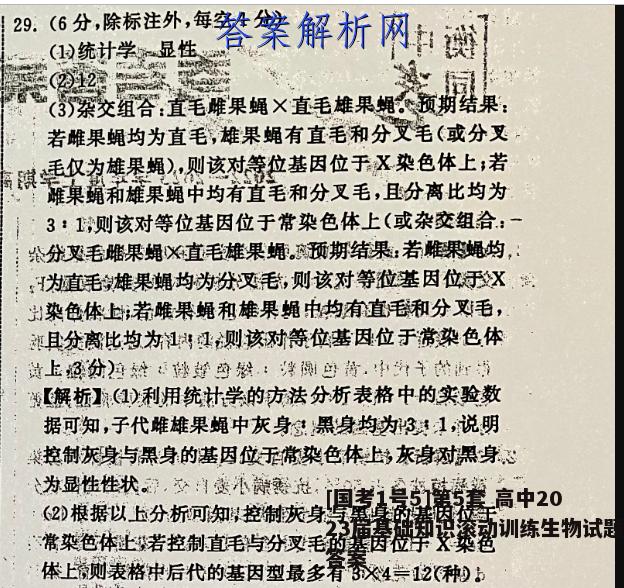 29. (6分,除标注外,每空1分)
答案解析网
(1)统计学 显性
(2)12
(3)杂交组合:直毛雌果蝇×直毛雄果蝇。预期结果:
若雌果蝇均为直毛,雄果蝇有直毛和分叉毛(或分叉
毛仅为雄果蝇),则该对等位基因位于X染色体上;若
雌果蝇和雄果蝇中均有直毛和分叉毛,且分离比均为
3:1,则该对等位基因位于常染色体上(或杂交组合:
分叉毛雌果蝇×直毛雄果蝇。预期结果:若雌果蝇均
为直毛,雄果蝇均为分叉毛,则该对等位基因位于X
染色体上;若雌果蝇和雄果蝇中均有直毛和分叉毛,
且分离比均为1:1,则该对等位基因位于常染色体
上,3分)
【解析】(1)利用统计学的方法分析表格中的实验数
据可知,子代雌雄果蝇中灰身:黑身均为3:1,说明
控制灰身与黑身的基因位于常染色体上,灰身对黑身
为显性性状。
(2)根据以上分析可知,控制灰身与黑身的基因位于
常染色体上,若控制直毛与分叉毛的基因位于X染色
体上,则表格中后代的基因型最多有3×4=12(种)。
[国考1号5]第5套 高中20
23届基础知识滚动训练生物试题
答案